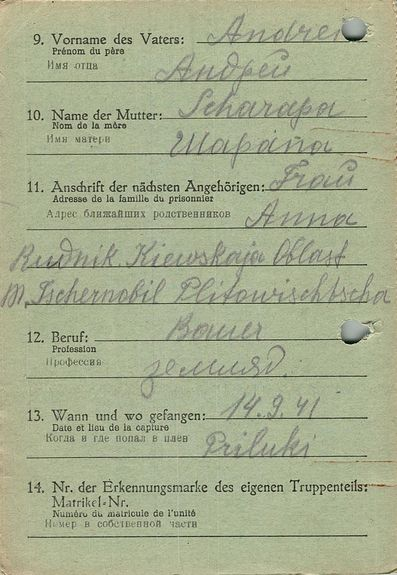 9. Vorname des Vaters: Andrei
Prénom du père
Имя отца
Андреи
10. Name der Mutter: Scharapa
Nom de la mère
Имя матери
Шарапа
11. Anschrift der nächsten Angehörigen: Frau
Adresse de la famille du prisonnier
Адрес ближайших родственников
Anna
Rudnik Kiewskaja Oblast
Tschernobil Plitowischtscha
12. Beruf: Bauer
Profession
Профессия
земляд.
13. Wann und wo gefangen: 14.9.41
Date et lieu de la capture
Когда и где попал в плен
Priluki
14. Nr. der Erkennungsmarke des eigenen Truppenteils:
Matrikel-Nr.
Numéro du matricule de l'unité
Номер в собственной части